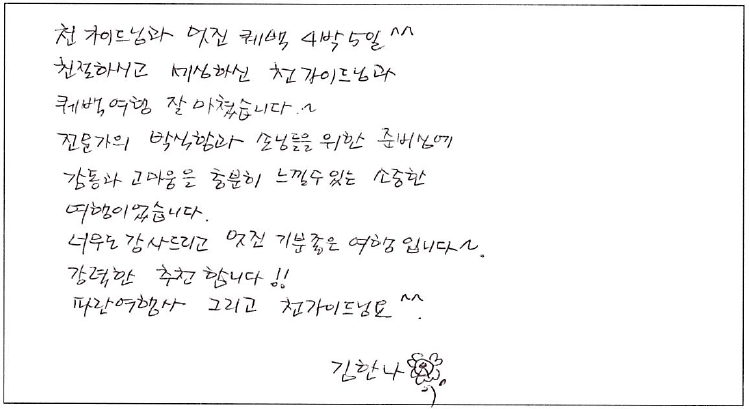 천 가이드님과 멋진 퀘백 4박5일^^
친절하시고 세심하신 천가이드님과
퀘백여행 잘 마쳤습니다.~
전문가의 박식함과 손님들을 위한 준비심에
감동과 고마움을 충분히 느낄수있는 소중한
여행이였습니다.
너무도 감사드리고 멋진 기분좋은 여행입니다~.
강력한 추천합니다!!
파란여행사 그리고 천가이드님요^^.
김한나